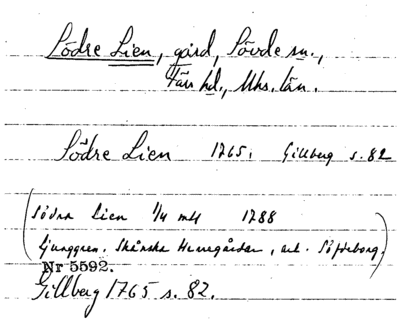 Södre Lien, gård, Sövde sn.,
Färs hd., Mhs. län.
Södre Lien 1765. Gillberg s. 82
(Södra Lien 1/4 mtl 1788
Ljunggren. Skånska Herregårdar, art. Söfdeborg.)
Nr 5592.
Gillberg 1765 s. 82.